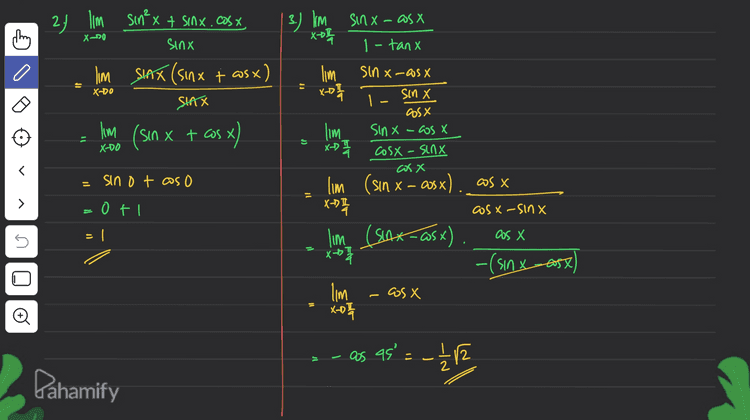 2) lim x→0 sin²x + sinx . cosx / sinx
= lim x→0 sinx (sinx + cosx) / sinx
= lim x→0 (sin x + cos x)
= sin 0 + cos 0
= 0 + 1
= 1
3) lim x→π/4 sin x - cos x / 1 - tan x
= lim x→π/4 sin x - cos x / 1 - sin x / cos x
= lim x→π/4 sin x - cos x / cos x - sin x / cos x
= lim x→π/4 (sin x - cos x) . cos x / cos x - sin x
= lim x→π/4 (sin x - cos x) . cos x / -(sin x - cos x)
= lim x→π/4 - cos x
= - cos 45° = - 1/2 √2
Pahamify